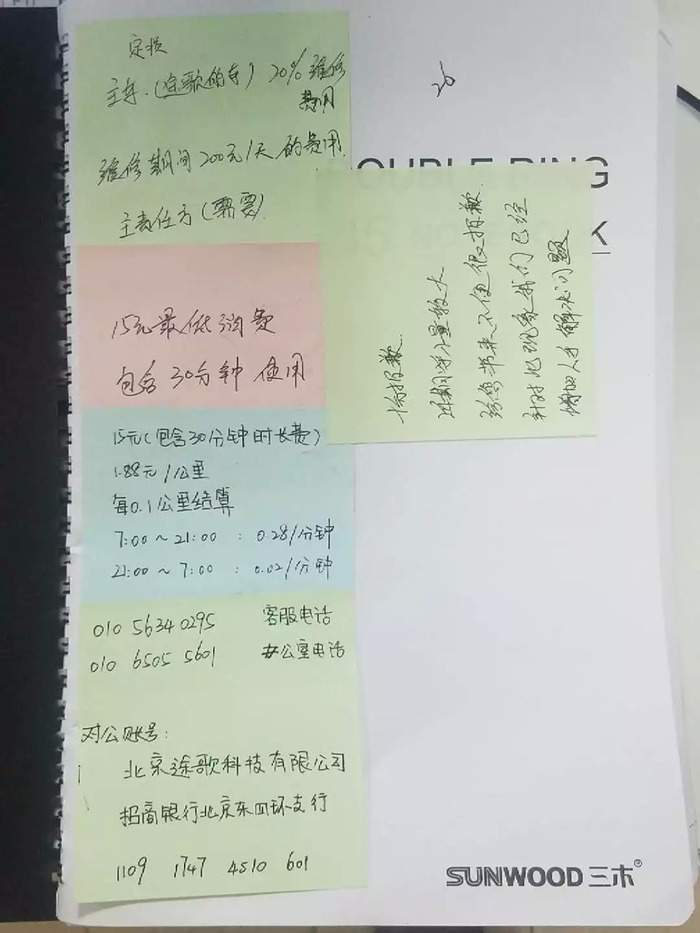 定损
主车.(途歌的车) 20% 维修
费用
维修期间 200元/天 的费用.
主责任方(需要)
15元最低消费
包含 30分钟 使用
15元(包含30分钟时长费)
1.88元/公里
每0.1公里结算
7:00 ~ 21:00 : 0.28/分钟
21:00 ~ 7:00 : 0.02/分钟
010 5634 0295 客服电话
010 6505 5601 办公室电话
对公账号:
北京途歌科技有限公司
招商银行北京东四环支行
1109 1747 4510 601
OUBLE RING
K
很抱歉.
近期单量较大
给您带来不便很抱歉.
针对此现象我们已经
增加人手解决问题
SUNWOOD 三木®